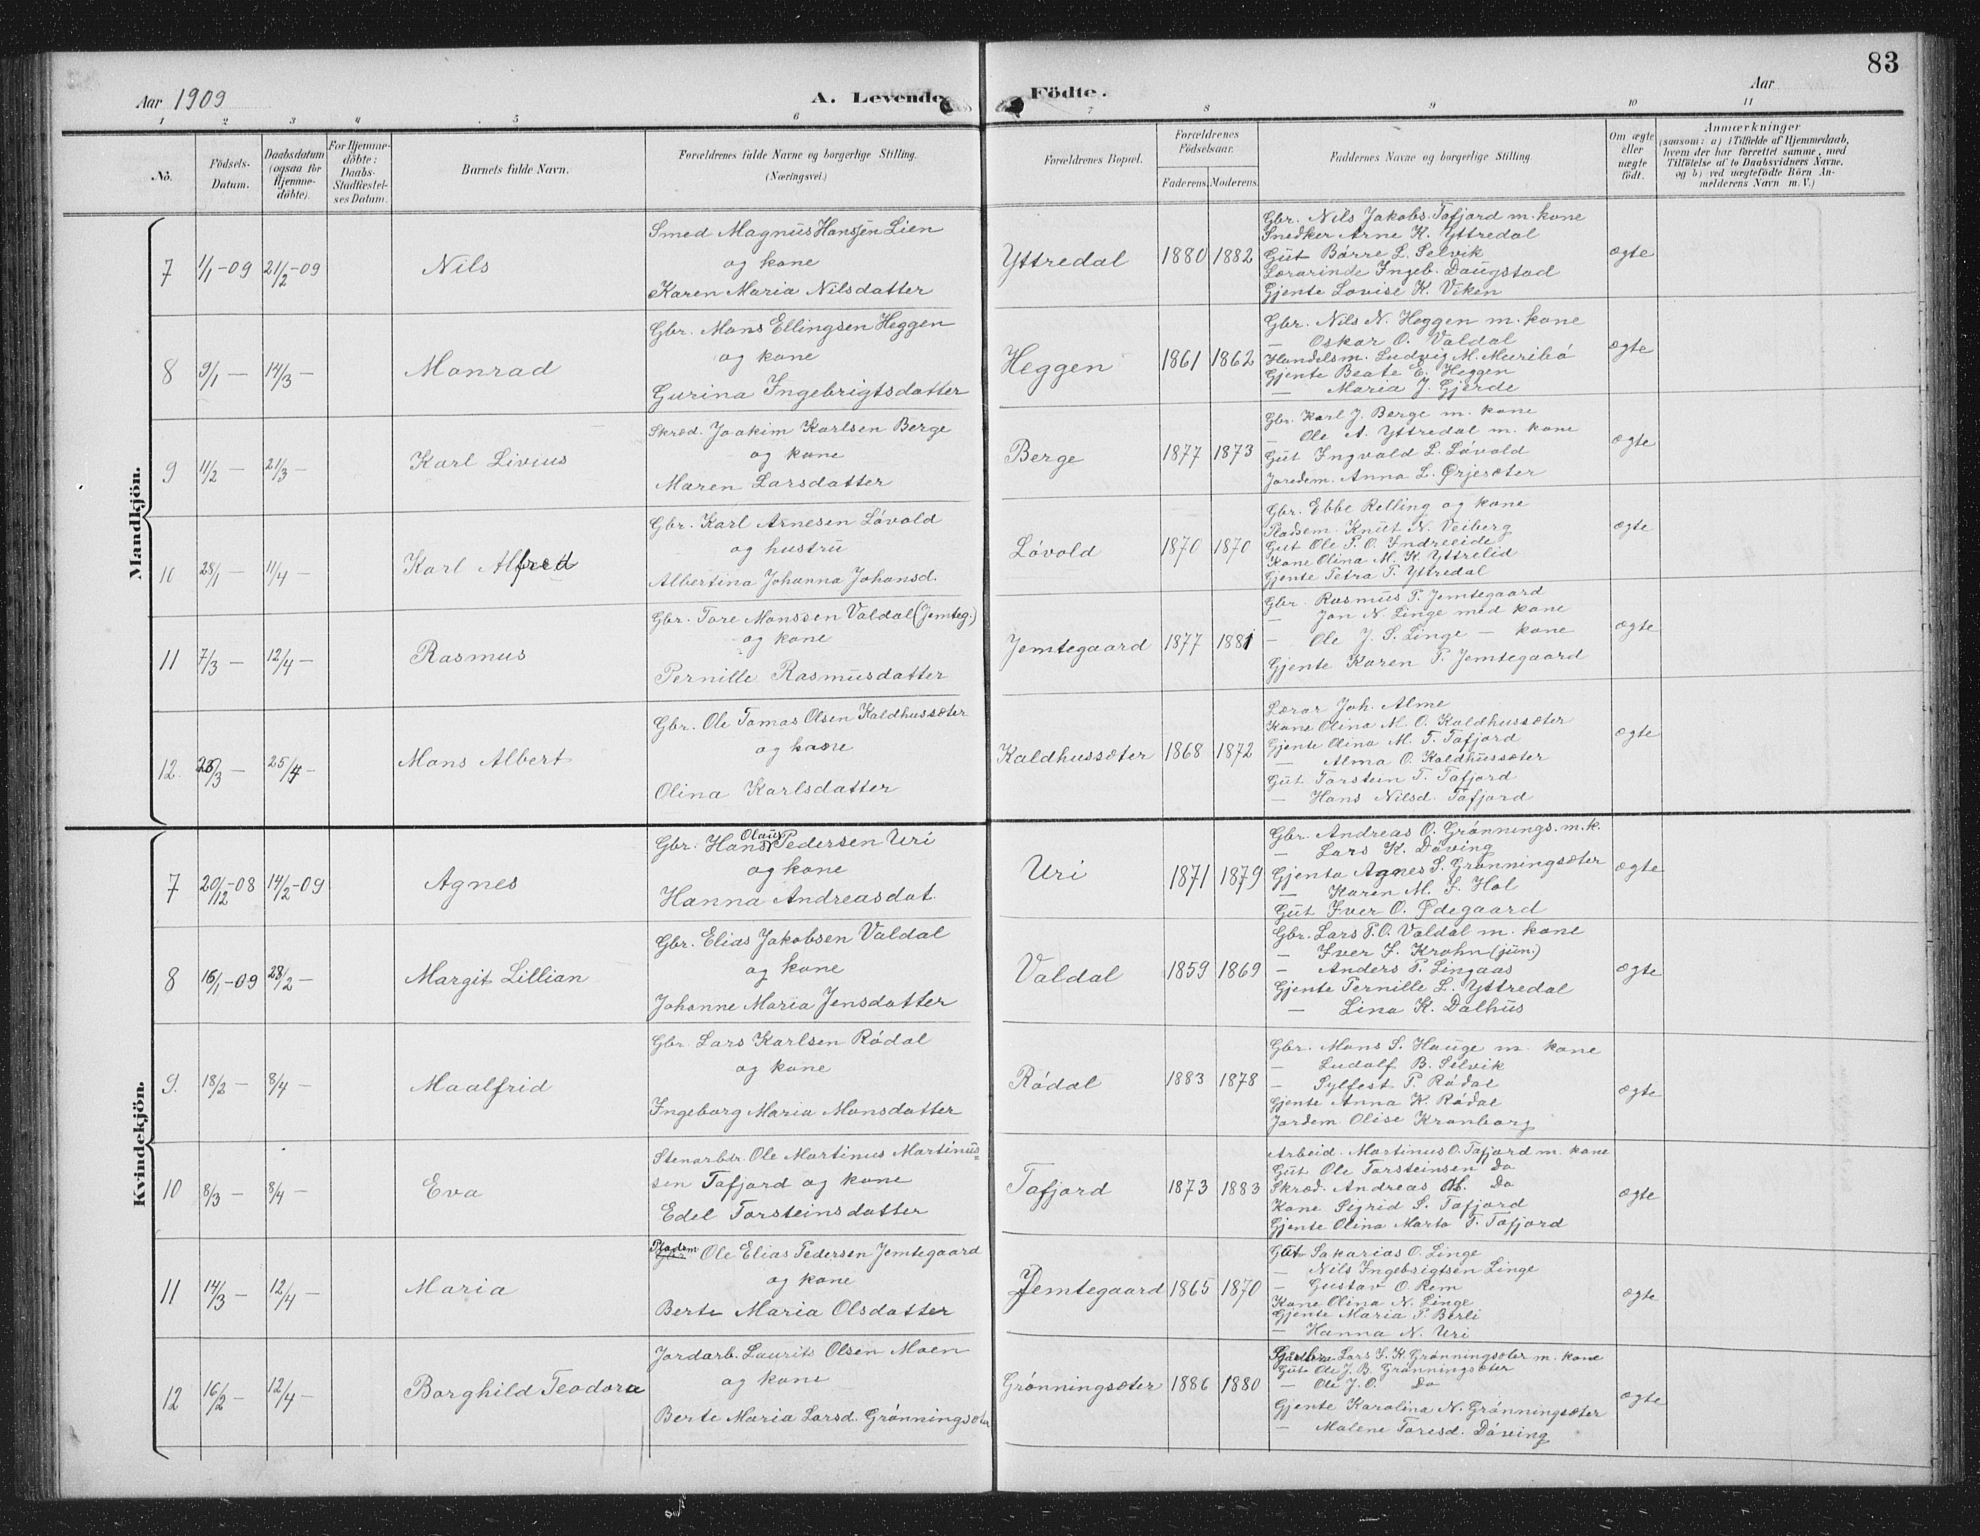 83
Aar 1909 A. Levende Födte. Aar
1 2 3 4 5 6 7 8 9 10 11
No. Födsels-Datum. Daabsdatum (ogsaa for Hjemme-döbte). For Hjemme-döbte: Daabs-Stadfæstel-ses Datum. Barnets fulde Navn. Forældrenes fulde Navne og borgerlige Stilling. (Næringsvei.) Forældrenes Bopæl. Forældrenes Födselsaar. Faderens. Moderens. Faddernes Navne og borgerlige Stilling. Om ægte eller uægte födt. Anmærkninger (saasom: a) i Tilfælde af Hjemmedaab, hvem der har forrettet samme, med Tilföielse af to Daabsvidners Navne, og b) ved uægtefödte Börn An-melderens Navn m. V.)
Mandkjön.
7 1/1-09 21/2-09 Nils
Smed Magnus Hanssen Lien
og kone
Karen Maria Nilsdatter
Yttredal 1880 1882
Gbr. Nils Jakobs. Tafjord m. kone
Snedker Arne K. Yttredal
Gut Børre L. Selvik
Lærarinde Ingeb. Daugstad
Gjente Lovise K. Viken
ægte
8 9/1 — 14/3 — Monrad
Gbr. Mons Ellingsen Heggen
og kone
Gurina Ingebrigtsdatter
Heggen 1861 1862
Gbr. Nils N. Heggen m. kone
— Oskar O. Valdal
Handelsm. Ludvig M. Muribø
Gjente Beate E. Heggen
— Maria J. Gjerde
ægte
9 11/2 — 21/3 — Karl Livius
Skræd. Joakim Karlsen Berge
og kone
Maren Larsdatter
Berge 1877 1873
Gbr. Karl J. Berge m. kone
— Ole A. Yttredal m. kone
Gut Ingvald L. Løvold
Joredem. Anna L. Ørjesæter
ægte
10 28/1 — 11/4 — Karl Alfred
Gbr. Karl Arnesen Løvold
og hustru
Albertina Johanna Johansd.
Løvold 1870 1870
Gbr. Ebbe Relling og kone
Pladsem. Knut N. Veiberg
Gut Ole P. O. Indreeide
Kone Olina M. K. Yttrelid
Gjente Petra P. Yttredal
ægte
11 7/3 — 12/4 — Rasmus
Gbr. Tore Monssen Valdal (Jemteg.)
og kone
Pernille Rasmusdatter
Jemtegaard 1877 1881
Gbr. Rasmus P. Jemtegaard
— Jon N. Linge med kone
— Ole J. S. Linge — kone
Gjente Karen P. Jemtegaard
ægte
12. /3 — 25/4 — Mons Albert
Gbr. Ole Tomas Olsen Kaldhussæter
og kone
Olina Karlsdatter
Kaldhussæter 1868 1872
Lærar Joh. Alme
Kone Olina M. O. Kaldhussæter
Gjente Olina M. T. Tafjord
— Alma O. Kaldhussæter
Gut Torstein T. Tafjord
— Hans Nilsd. Tafjord
ægte
Kvindekjön.
7 20/12-08 14/2-09 Agnes
Gbr. Hans Olaus Pedersen Uri
og kone
Hanna Andreasdat.
Uri 1871 1879
Gbr. Andreas O. Grønnings. m. k.
— Lars K. Døving
Gjenta Agnes S. Grønningsæter
— Karen M. I. Hol
Gut Iver O. Ødegaard
ægte
8 16/1-09 28/2 — Margit Lillian
Gbr. Elias Jakobsen Valdal
og kone
Johanne Maria Jensdatter
Valdal 1859 1869
Gbr. Lars P. O. Valdal m. kone
— Iver I. Krohn (jun.)
— Anders P. Lingaas
Gjente Pernille L. Yttredal
— Lina K. Dalhus
ægte
9. 18/2 — 8/4 — Maalfrid
Gbr. Lars Karlsen Rødal
og kone
Ingeborg Maria Monsdatter
Rødal 1883 1878
Gbr. Mons S. Hauge m. kone
— Ludolf B. Selvik
— Sylfest P. Rødal
Gjente Anna K. Rødal
Jordem. Olise Kronborg
ægte
10 8/3 — 8/4 — Eva
Stenarbdr. Ole Martinus Martinus=
sen Tafjord og kone
Edel Torsteinsdatter
Tafjord 1873 1883
Arbeid. Martinus O. Tafjord m. kone
Gut Ole Torsteinsen Do
Skræd. Andreas M. Do
Kone Sigrid S. Tafjord
Gjente Olina Marta T. Tafjord
ægte
11 14/3 — 12/4 — Maria
Pladsm Gbr. Ole Elias Pedersen Jemtegaard
og kone
Berte Maria Olsdatter
Jemtegaard 1865 1870
Gut Sakarias O. Linge
— Nils Ingebrigtsen Linge
— Gustav O. Rem
Kone Olina N. Linge
Gjente Maria P. Berli
— Hanna N. Uri
ægte
12 16/2 — 12/4 — Borghild Teodora
Jordarb. Laurits Olsen Moen
og kone
Berte Maria Larsd. Grønningsæter
Grønningsæter 1886 1880
Lars L. H. Grønningsæter m. kone
Gut Ole J. B. Grønningsæter
— Ole J. O. Do
Gjente Karolina N. Grønningsæter
— Malene Toresd. Døving
ægte